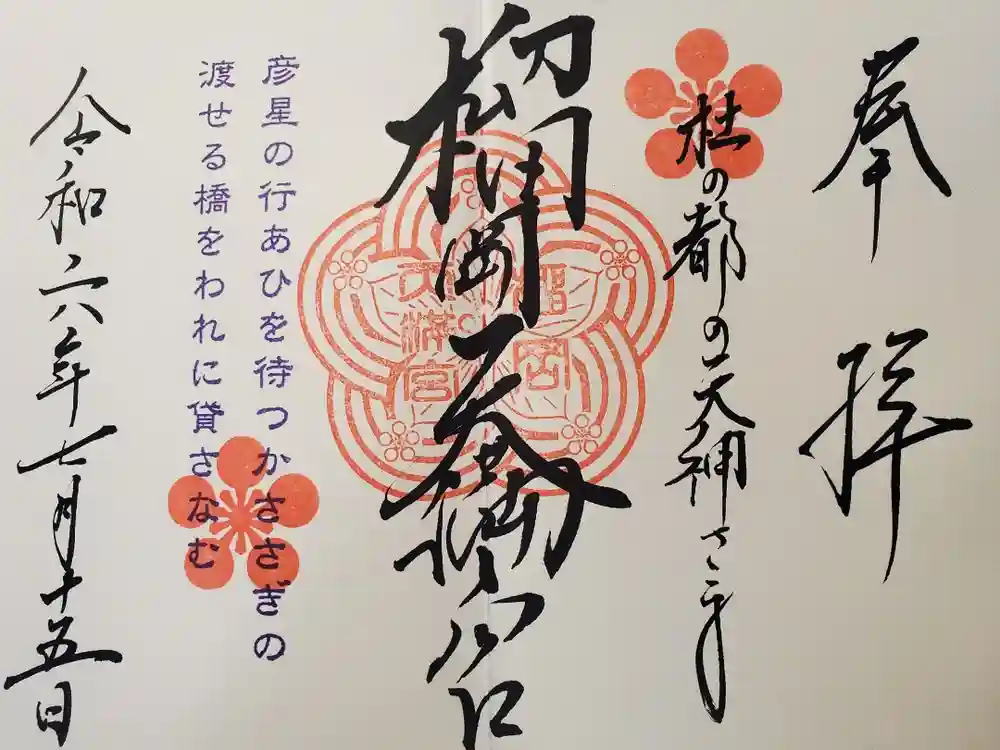 奉拝
杜の都の天神さま
榴岡天満宮
榴岡
天満宮
彦星の行あひを待つかささぎの
渡せる橋をわれに貸さなむ
令和六年七月十五日